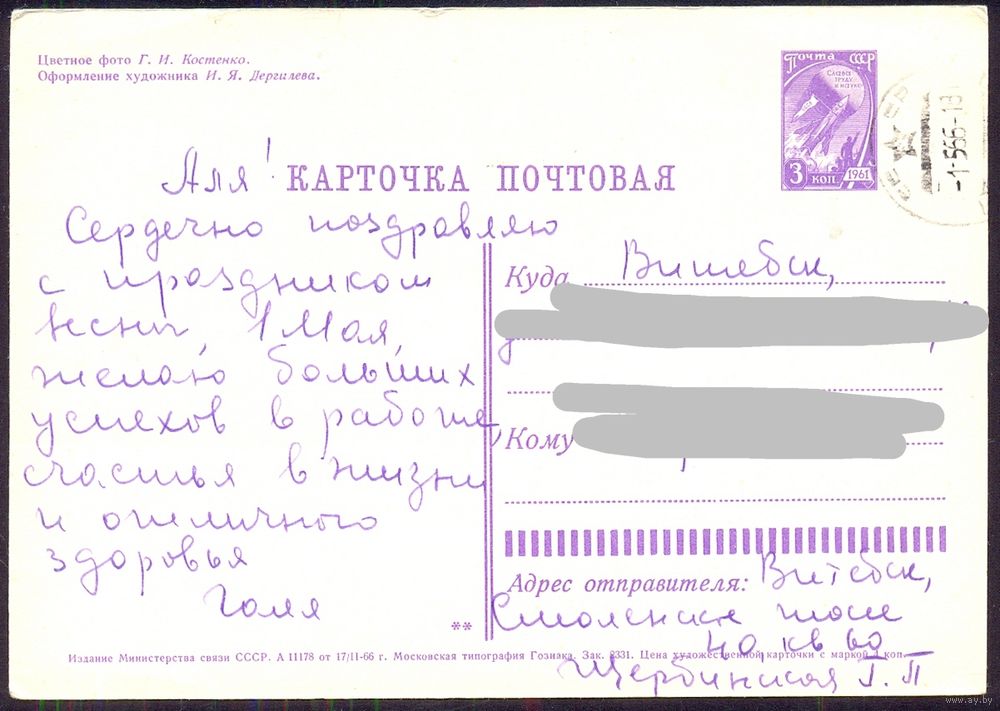 Цветное фото Г. И. Костенко.
Оформление художника И. Я. Дергилева.
Почта СССР
СЛАВА
ТРУДУ
И НАУКЕ
3 коп. 1961
Аля!
КАРТОЧКА ПОЧТОВАЯ
Сердечно поздравляю
с праздником
весны, 1 Мая,
желаю больших
успехов в работе,
счастья в жизни
и отличного
здоровья
Голя
Куда Витебск,
Кому
Адрес отправителя: Витебск,
Смоленская
40, кв 60
Щербинская Г. П
**
Издание Министерства связи СССР. А 11178 от 17/II-66 г. Московская типография Гознака. Зак. 3331. Цена художественной карточки с маркой 4 коп.
www.ay.by